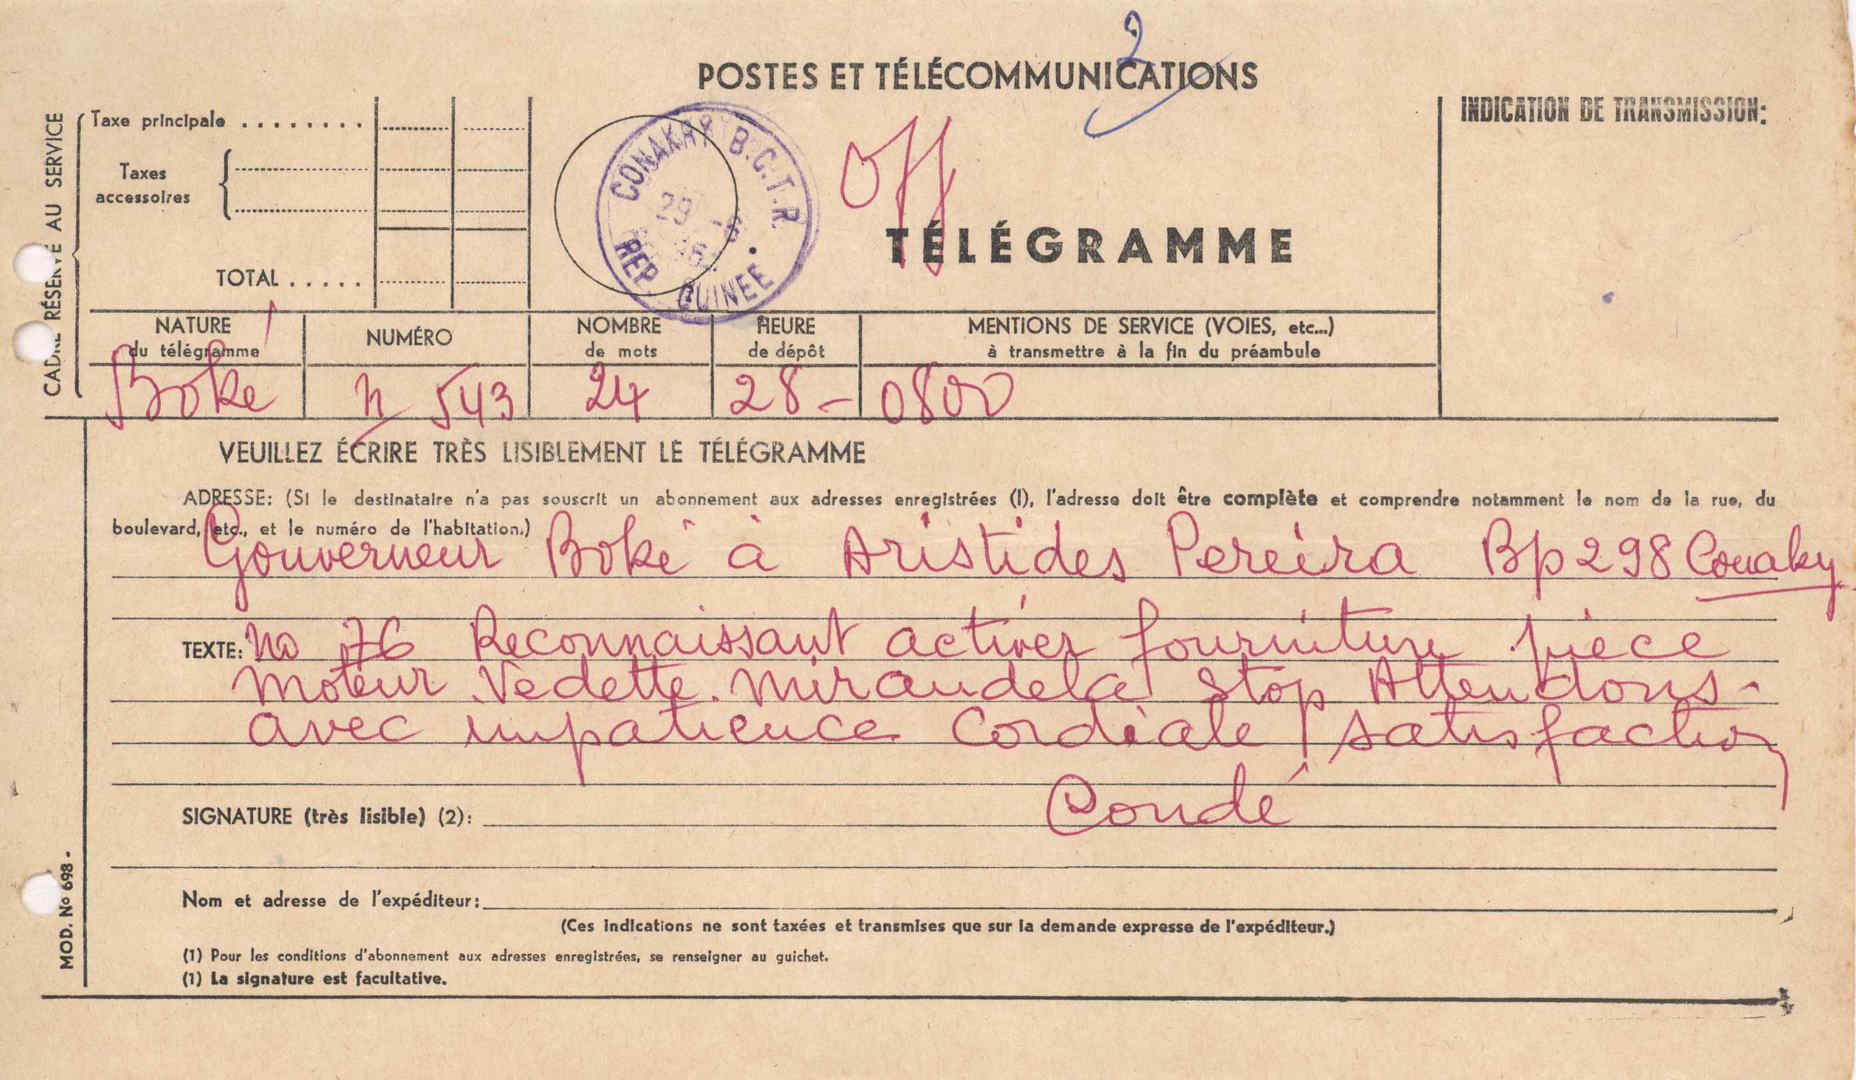 2
POSTES ET TÉLÉCOMMUNICATIONS
CADRE RÉSERVÉ AU SERVICE
Taxe principale ........
Taxes
accessoires
TOTAL .....
CONAKRY B.C.T.R.
29
REP. GUINEE
Off
TÉLÉGRAMME
INDICATION DE TRANSMISSION:
NATURE
du télégramme
NUMÉRO
NOMBRE
de mots
HEURE
de dépôt
MENTIONS DE SERVICE (VOIES, etc...)
à transmettre à la fin du préambule
Boke n 543 24 28 - 0800
VEUILLEZ ÉCRIRE TRÈS LISIBLEMENT LE TÉLÉGRAMME
ADRESSE: (Si le destinataire n'a pas souscrit un abonnement aux adresses enregistrées (I), l'adresse doit être complète et comprendre notamment le nom de la rue, du
boulevard, etc., et le numéro de l'habitation.)
Gouverneur Boké à Aristides Pereira Bp 298 Conaky
TEXTE: No 76 Reconnaissant activer fourniture pièce
moteur Vedette Mirandela stop Attendons
avec impatience Cordiale satisfaction
Condé
SIGNATURE (très lisible) (2):
Nom et adresse de l'expéditeur:
(Ces indications ne sont taxées et transmises que sur la demande expresse de l'expéditeur.)
(1) Pour les conditions d'abonnement aux adresses enregistrées, se renseigner au guichet.
(1) La signature est facultative.
MOD. No 698 -